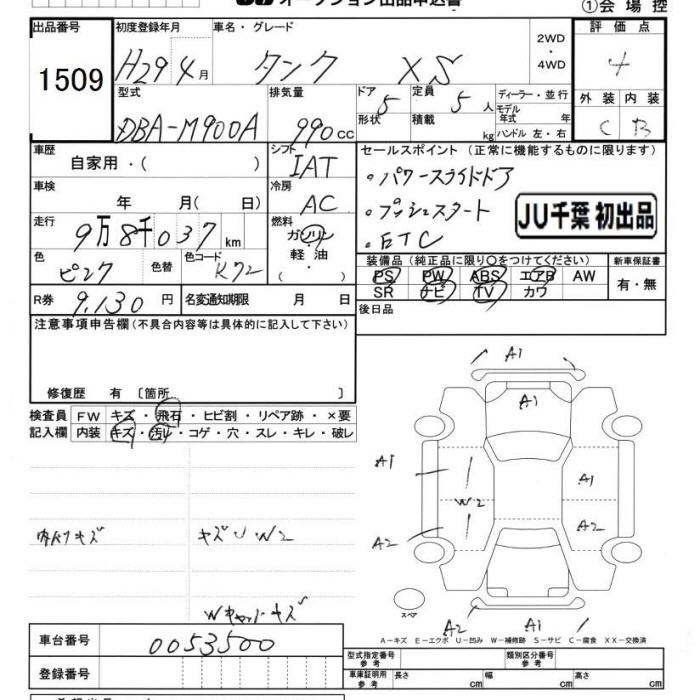 オークション出品申込書
①会 場 控
出品番号 1509
初度登録年月 H29年4月
車名・グレード タンク XS
2WD ・ 4WD
評 価 点 4
外 装 内 装
C B
型式 DBA-M900A
排気量 990 cc
ドア 5 形状
定員 5 人
積載 kg
ディーラー・並行
モデル年式 年
ハンドル 左・右
車歴 自家用・( )
シフト IAT
セールスポイント (正常に機能するものに限ります)
・パワースライドドア
・プッシュスタート
・ETC
JU千葉 初出品
車検 年 月( 日)
冷房 AC
走行 9万8千037 km
燃料 ガソリン ・ 軽油 ・
色 ピンク
色替
色コード K72
装備品 (純正品に限り○をつけてください)
新車保証書
PS PW ABS エアB AW
SR ナビ TV カワ
有・無
R券 9,130 円
名変通知期限 月 日
後日品
注意事項申告欄 (不具合内容等は具体的に記入して下さい)
修復歴 有 〔箇所 〕
検査員記入欄
FW キズ・飛石・ヒビ割・リペア跡・×要
内装 キズ・汚れ・コゲ・穴・スレ・キレ・破レ
A1
A1
A1
A1
W2
A2
A2
内張キズ
キズU W2
キズ
スペア
A2 A1
A-キズ E-エクボ U-凹み W-補修跡 S-サビ C-腐食 XX-交換済
車台番号 0053500
型式指定番号 参考
類別区分番号 参考
登録番号
車庫証明用 参考
長さ cm 幅 cm 高さ cm